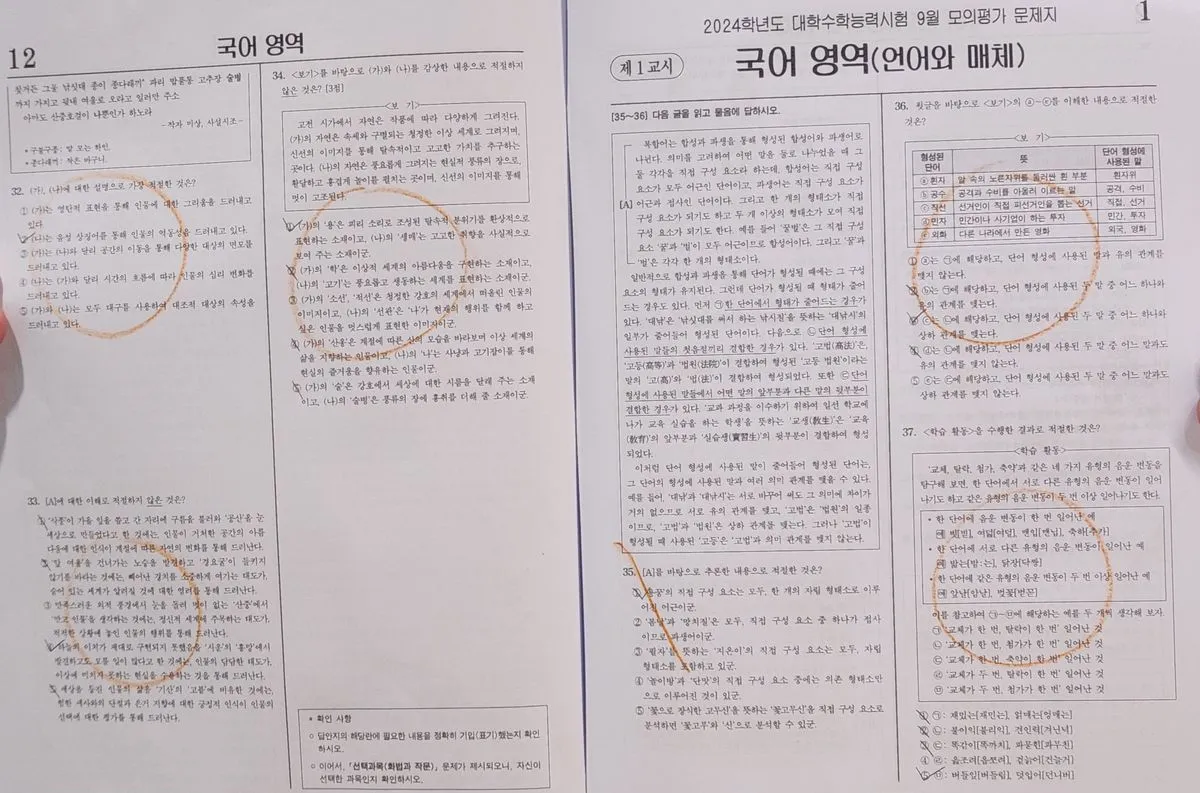 12
국어 영역
찾거든 그물 낚싯대 종이 종다래끼* 파리 밥풀통 고추장 술병
까지 가지고 뒷내 여울로 오라고 일러만 주소
아마도 산중호걸이 나뿐인가 하노라
-작자 미상, 사설시조-
* 구불구종: 말 모는 하인.
* 종다래끼: 작은 바구니.
32. (가), (나)에 대한 설명으로 가장 적절한 것은?
① (가)는 영탄적 표현을 통해 인물에 대한 그리움을 드러내고
있다.
② (나)는 음성 상징어를 통해 인물의 역동성을 드러내고 있다.
③ (가)는 (나)와 달리 공간의 이동을 통해 다양한 대상의 면모를
드러내고 있다.
④ (나)는 (가)와 달리 시간의 흐름에 따라 인물의 심리 변화를
드러내고 있다.
⑤ (가)와 (나)는 모두 대구를 사용하여 대조적 대상의 속성을
드러내고 있다.
33. [A]에 대한 이해로 적절하지 않은 것은?
① '삭풍'이 가을 잎을 쓸고 간 자리에 구름을 불러와 '공산'을 눈
세상으로 만들었다고 한 것에는, 인물이 거처한 공간의 아름
다움에 대한 인식이 계절에 따른 자연의 변화를 통해 드러난다.
② '앞 여울'을 건너가는 노승을 발견하고 '경요굴'이 들키지
않기를 바라는 것에는, 빼어난 경치를 소중하게 여기는 태도가,
숨어 있는 세계가 알려질 것에 대한 염려를 통해 드러난다.
③ 만족스러운 외적 풍경에서 눈을 돌려 벗이 없는 '산중'에서
'만고 인물'을 생각하는 것에는, 정신적 세계에 주목하는 태도가,
적적한 상황에 놓인 인물의 행위를 통해 드러난다.
④ 하늘의 이치가 제대로 구현되지 못했음을 '시운'의 '흥망'에서
발견하고도 모를 일이 많다고 한 것에는, 인물의 담담한 태도가,
이상에 미치지 못하는 현실을 수용하는 것을 통해 드러난다.
⑤ 세상을 등진 인물의 삶을 '기산'의 '고불'에 비유한 것에는,
험한 세사와의 단절과 은거 지향에 대한 긍정적 인식이 인물의
선택에 대한 평가를 통해 드러난다.
34. <보기>를 바탕으로 (가)와 (나)를 감상한 내용으로 적절하지
않은 것은? [3점]
<보 기>
고전 시가에서 자연은 작품에 따라 다양하게 그려진다.
(가)의 자연은 속세와 구별되는 청정한 이상 세계로 그려지며,
신선의 이미지를 통해 탈속적이고 고고한 가치를 추구하는
곳이다. (나)의 자연은 풍요롭게 그려지는 현실적 풍류의 장으로,
활달하고 흥겹게 놀이를 펼치는 곳이며, 신선의 이미지를 통해
멋이 고조된다.
① (가)의 '용'은 피리 소리로 조성된 탈속적 분위기를 환상적으로
표현하는 소재이고, (나)의 '생매'는 고고한 취향을 사실적으로
보여 주는 소재이군.
② (가)의 '학'은 이상적 세계의 아름다움을 구현하는 소재이고,
(나)의 '고기'는 풍요롭고 생동하는 세계를 표현하는 소재이군.
③ (가)의 '소선', '적선'은 청정한 강호의 세계에서 떠올린 인물의
이미지이고, (나)의 '선관'은 '나'가 현재의 행위를 함께 하고
싶은 인물을 멋스럽게 표현한 이미지이군.
④ (가)의 '산옹'은 계절에 따른 산의 모습을 바라보며 이상 세계의
삶을 지향하는 인물이고, (나)의 '나'는 사냥과 고기잡이를 통해
현실의 즐거움을 향유하는 인물이군.
⑤ (가)의 '술'은 강호에서 세상에 대한 시름을 달래 주는 소재
이고, (나)의 '술병'은 풍류의 장에 흥취를 더해 줄 소재이군.
* 확인 사항
○ 답안지의 해당란에 필요한 내용을 정확히 기입(표기)했는지 확인
하시오.
○ 이어서, 「선택과목(화법과 작문)」 문제가 제시되오니, 자신이
선택한 과목인지 확인하시오.
2024학년도 대학수학능력시험 9월 모의평가 문제지
1
제 1 교시
국어 영역(언어와 매체)
[35~36] 다음 글을 읽고 물음에 답하시오.
[A]
복합어는 합성과 파생을 통해 형성된 합성어와 파생어로
나뉜다. 의미를 고려하여 어떤 말을 둘로 나누었을 때 그
둘 각각을 직접 구성 요소라 하는데, 합성어는 직접 구성
요소가 모두 어근인 단어이고, 파생어는 직접 구성 요소가
어근과 접사인 단어이다. 그리고 한 개의 형태소가 직접
구성 요소가 되기도 하고 두 개 이상의 형태소가 모여 직접
구성 요소가 되기도 한다. 예를 들어 '꿀벌'은 그 직접 구성
요소 '꿀'과 '벌'이 모두 어근이므로 합성어이다. 그리고 '꿀'과
'벌'은 각각 한 개의 형태소이다.
일반적으로 합성과 파생을 통해 단어가 형성될 때에는 그 구성
요소의 형태가 유지된다. 그런데 단어가 형성될 때 형태가 줄어
드는 경우도 있다. 먼저 ㉠한 단어에서 형태가 줄어드는 경우가
있다. '대낚'은 '낚싯대를 써서 하는 낚시질'을 뜻하는 '대낚시'의
일부가 줄어들어 형성된 단어이다. 다음으로 ㉡단어 형성에
사용된 말들의 첫음절끼리 결합한 경우가 있다. '고법(高法)'은,
'고등(高等)'과 '법원(法院)'이 결합하여 형성된 '고등 법원'이라는
말의 '고(高)'와 '법(法)'이 결합하여 형성되었다. 또한 ㉢단어
형성에 사용된 말들에서 어떤 말의 앞부분과 다른 말의 뒷부분이
결합한 경우가 있다. '교과 과정을 이수하기 위하여 일선 학교에
나가 교육 실습을 하는 학생'을 뜻하는 '교생(敎生)'은 '교육
(敎育)'의 앞부분과 '실습생(實習生)'의 뒷부분이 결합하여 형성
되었다.
이처럼 단어 형성에 사용된 말이 줄어들어 형성된 단어는,
그 단어의 형성에 사용된 말과 여러 의미 관계를 맺을 수 있다.
예를 들어, '대낚'과 '대낚시'는 서로 바꾸어 써도 그 의미에 차이가
거의 없으므로 서로 유의 관계를 맺고, '고법'은 '법원'의 일종
이므로, '고법'과 '법원'은 상하 관계를 맺는다. 그러나 '고법'이
형성될 때 사용된 '고등'은 '고법'과 의미 관계를 맺지 않는다.
35. [A]를 바탕으로 추론한 내용으로 적절한 것은?
① '용꿈'의 직접 구성 요소는 모두, 한 개의 자립 형태소로 이루
어진 어근이군.
② '봄날'과 '망치질'은 모두, 직접 구성 요소 중 하나가 접사
이므로 파생어이군.
③ '필자'를 뜻하는 '지은이'의 직접 구성 요소는 모두, 자립
형태소를 포함하고 있군.
④ '놀이방'과 '단맛'의 직접 구성 요소 중에는 의존 형태소만
으로 이루어진 것이 있군.
⑤ '꽃으로 장식한 고무신'을 뜻하는 '꽃고무신'을 직접 구성 요소로
분석하면 '꽃고무'와 '신'으로 분석할 수 있군.
36. 윗글을 바탕으로 <보기>의 ⓐ~ⓔ를 이해한 내용으로 적절한
것은?
<보 기>
형성된 단어 뜻 단어 형성에 사용된 말
ⓐ흰자 알 속의 노른자위를 둘러싼 흰 부분 흰자위
ⓑ공수 공격과 수비를 아울러 이르는 말 공격, 수비
ⓒ직선 선거인이 직접 피선거인을 뽑는 선거 직접, 선거
ⓓ민자 민간이나 사기업이 하는 투자 민간, 투자
ⓔ외화 다른 나라에서 만든 영화 외국, 영화
① ⓐ는 ㉠에 해당하고, 단어 형성에 사용된 말과 유의 관계를
맺지 않는다.
② ⓑ는 ㉠에 해당하고, 단어 형성에 사용된 두 말 중 어느 하나와
유의 관계를 맺는다.
③ ⓒ는 ㉡에 해당하고, 단어 형성에 사용된 두 말 중 어느 하나와
상하 관계를 맺는다.
④ ⓓ는 ㉡에 해당하고, 단어 형성에 사용된 두 말 중 어느 말과도
유의 관계를 맺지 않는다.
⑤ ⓔ는 ㉢에 해당하고, 단어 형성에 사용된 두 말 중 어느 말과도
상하 관계를 맺지 않는다.
37. <학습 활동>을 수행한 결과로 적절한 것은?
<학습 활동>
'교체, 탈락, 첨가, 축약'과 같은 네 가지 유형의 음운 변동을
탐구해 보면, 한 단어에서 서로 다른 유형의 음운 변동이 일어
나기도 하고 같은 유형의 음운 변동이 두 번 이상 일어나기도 한다.
• 한 단어에 음운 변동이 한 번 일어난 예
예 빗[빋], 여덟[여덜], 맨입[맨닙], 축하[추카]
• 한 단어에 서로 다른 유형의 음운 변동이 일어난 예
예 밟는[밤ː는], 닭장[닥짱]
• 한 단어에 같은 유형의 음운 변동이 두 번 이상 일어난 예
예 앞날[암날], 벚꽃[벋꼳]
이를 참고하여 ㉠~㉤에 해당하는 예를 두 개씩 생각해 보자.
㉠ '교체가 한 번, 탈락이 한 번' 일어난 것
㉡ '교체가 한 번, 첨가가 한 번' 일어난 것
㉢ '교체가 한 번, 축약이 한 번' 일어난 것
㉣ '교체가 두 번, 탈락이 한 번' 일어난 것
㉤ '교체가 두 번, 첨가가 한 번' 일어난 것
① ㉠: 재밌는[재민는], 얽매는[엉매는]
② ㉡: 불이익[불리익], 견인력[겨닌녁]
③ ㉢: 똑같이[똑까치], 파묻힌[파무친]
④ ㉣: 읊조려[읍쪼려], 겉늙어[건늘거]
⑤ ㉤: 버들잎[버들립], 덧입어[던니버]